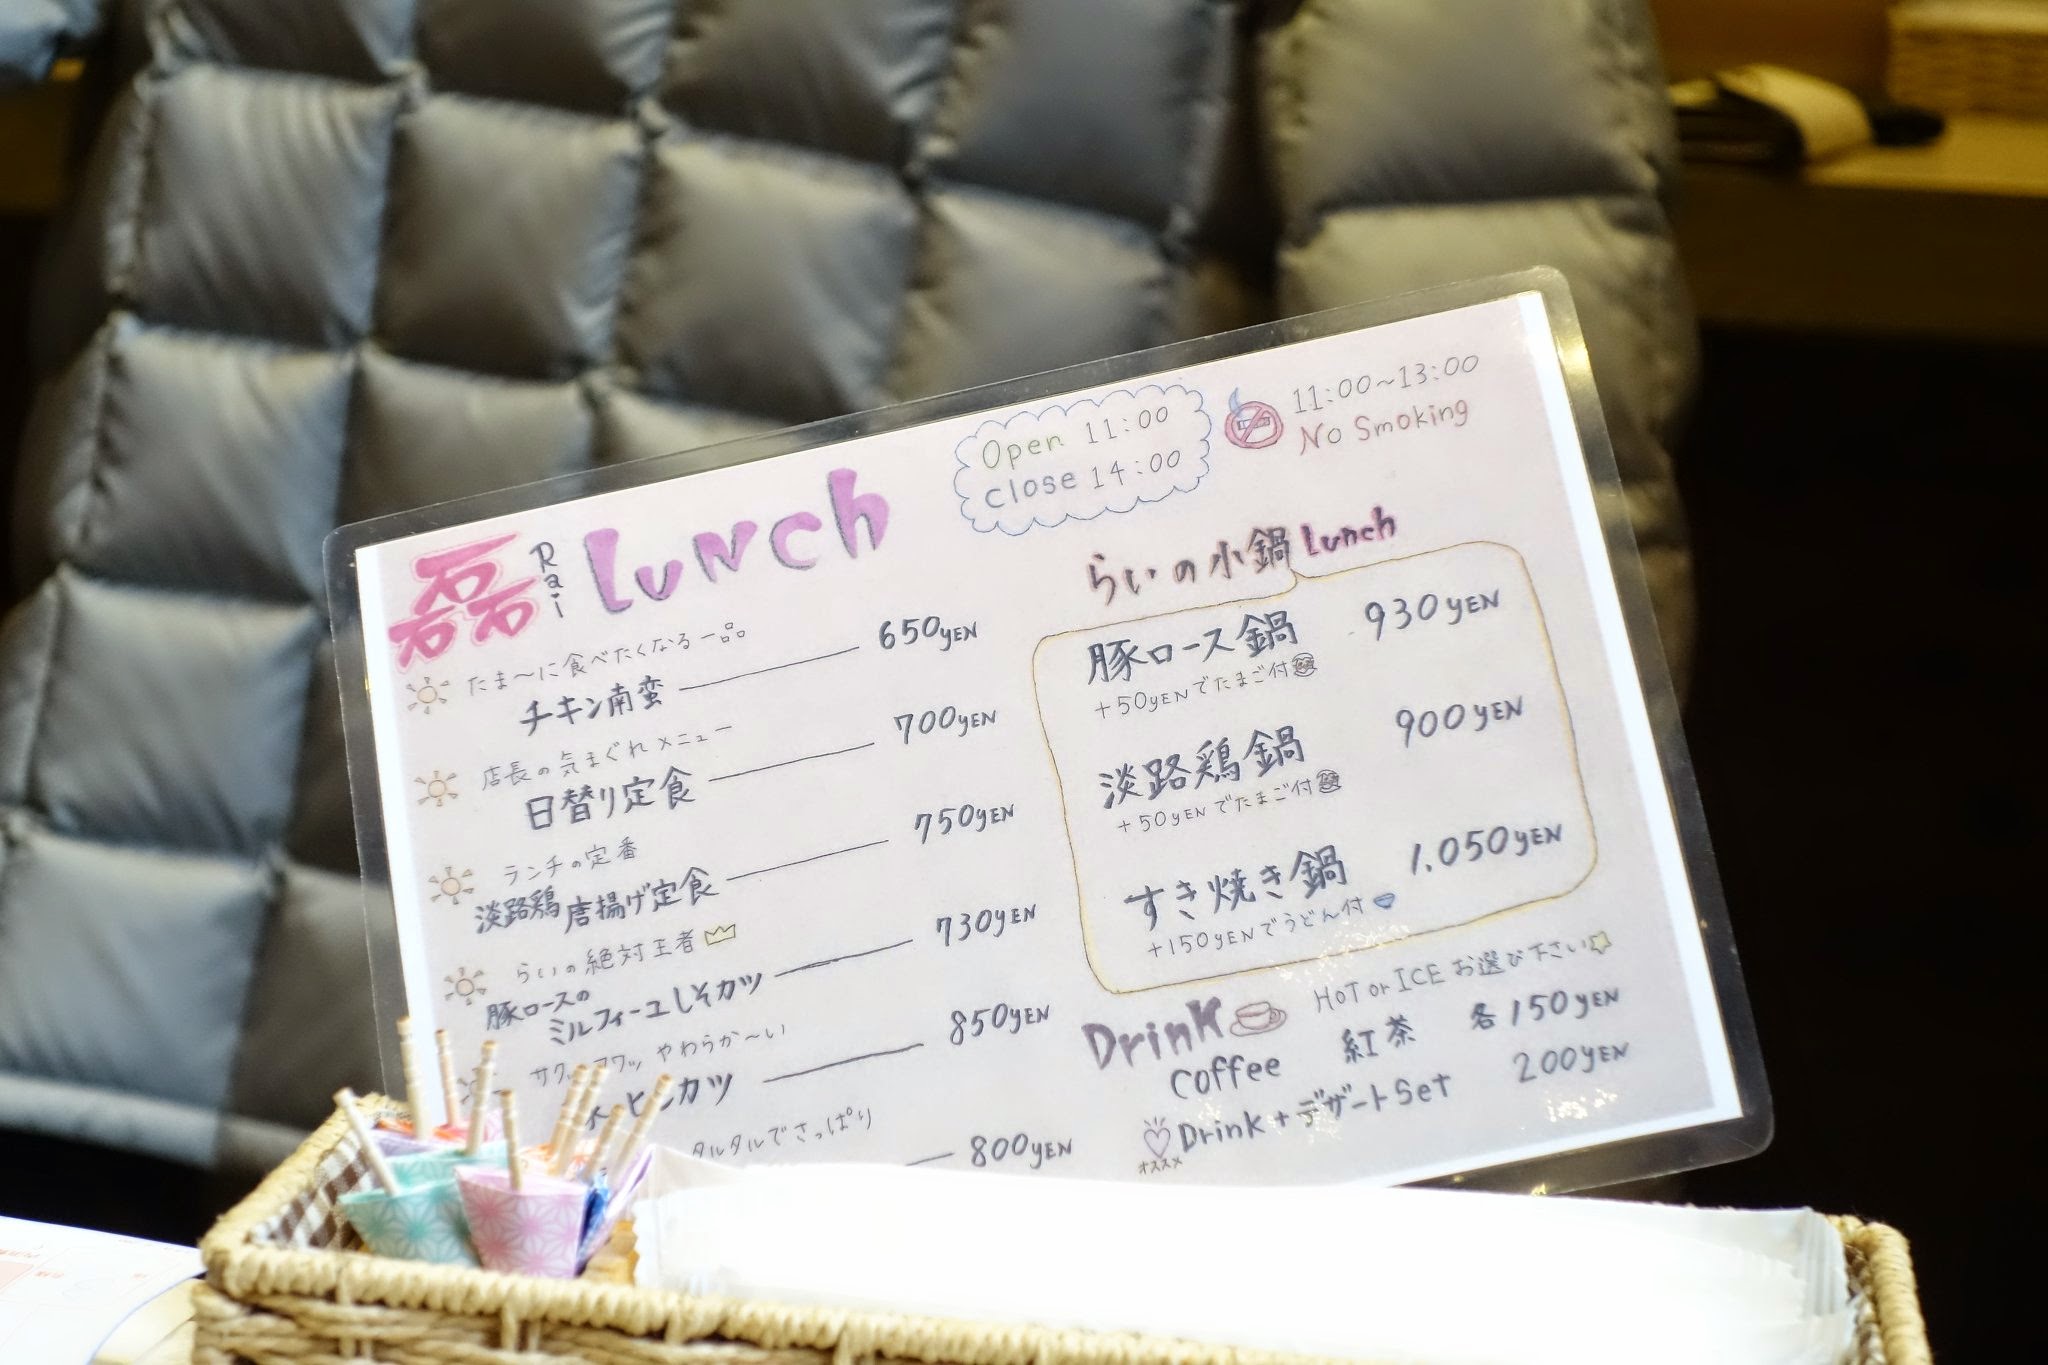 磊 Rai Lunch
Open 11:00
Close 14:00
11:00~13:00
No Smoking
たま～に食べたくなる一品
チキン南蛮 650YEN
店長の気まぐれメニュー
日替り定食 700YEN
ランチの定番
淡路鶏唐揚げ定食 750YEN
らいの絶対王者
豚ロースの
ミルフィーユしそカツ 730YEN
サクッフワッ やわらか～い
カツ 850YEN
タルタルでさっぱり
800YEN
らいの小鍋Lunch
豚ロース鍋 930YEN
+50YENでたまご付
淡路鶏鍋 900YEN
+50YENでたまご付
すき焼き鍋 1,050YEN
+150YENでうどん付
Drink HOT or ICE お選び下さい
Coffee 紅茶 各150YEN
オススメ Drink+デザートSet 200YEN